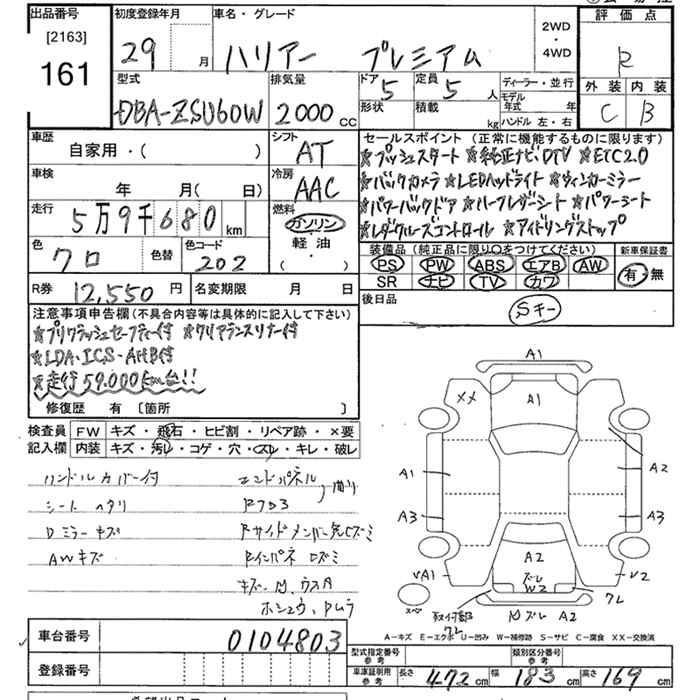 出品番号 [2163] 161
初度登録年月 29 月
車名・グレード ハリアー プレミアム
2WD・4WD
評価点 R
外装 内装
C B
型式 DBA-ZSU60W
排気量 2000 CC
ドア 5
定員 5 人
形状
積載 kg
ディーラー・並行
モデル年式 年
ハンドル 左・右
車歴 自家用・( )
シフト AT
車検 年 月( 日)
冷房 AAC
走行 5万9千680 km
燃料 ガソリン 軽油 ( ・ )
色 クロ
色替
色コード 202
R券 12,550 円
名変期限 月 日
セールスポイント(正常に機能するものに限ります)
★プッシュスタート ★純正ナビDTV ★ETC2.0
★バックカメラ ★LEDヘッドライト ★ウィンカーミラー
★パワーバックドア ★ハーフレザーシート ★パワーシート
★レダクルーズコントロール ★アイドリングストップ
装備品(純正品に限り○をつけてください)
PS PW ABS エアB AW
SR ナビ TV カワ
新車保証書 有・無
後日品 Sキー
注意事項申告欄(不具合内容等は具体的に記入して下さい)
★プリクラッシュセーフティー付 ★クリアランスソナー付
★LDA・ICS・AHB付
★走行59.000km台!!
修復歴 有 [箇所 ]
検査員記入欄
FW キズ・飛石・ヒビ割・リペア跡・×要
内装 キズ・汚レ・コゲ・穴・スレ・キレ・破レ
ハンドルカバー付
シート ヘタリ
Dミラーキズ
AWキズ
エンドパネル
Rフロア
曲り
RサイドメンバーC先ズミ
Rインパネ ロズミ
A1
XX A1
A1 A2
A3 A3
A2
ズレ
W2
VA1 V2
スペ
ワレ
Mズレ A2
A-キズ E-エクボ U-凹み W-補修跡 S-サビ C-腐食 XX-交換済
車台番号 0104803
登録番号
型式指定番号 参考
類別区分番号 参考
車庫証明用 参考 長さ 472 cm 幅 183 cm 高さ 169 cm